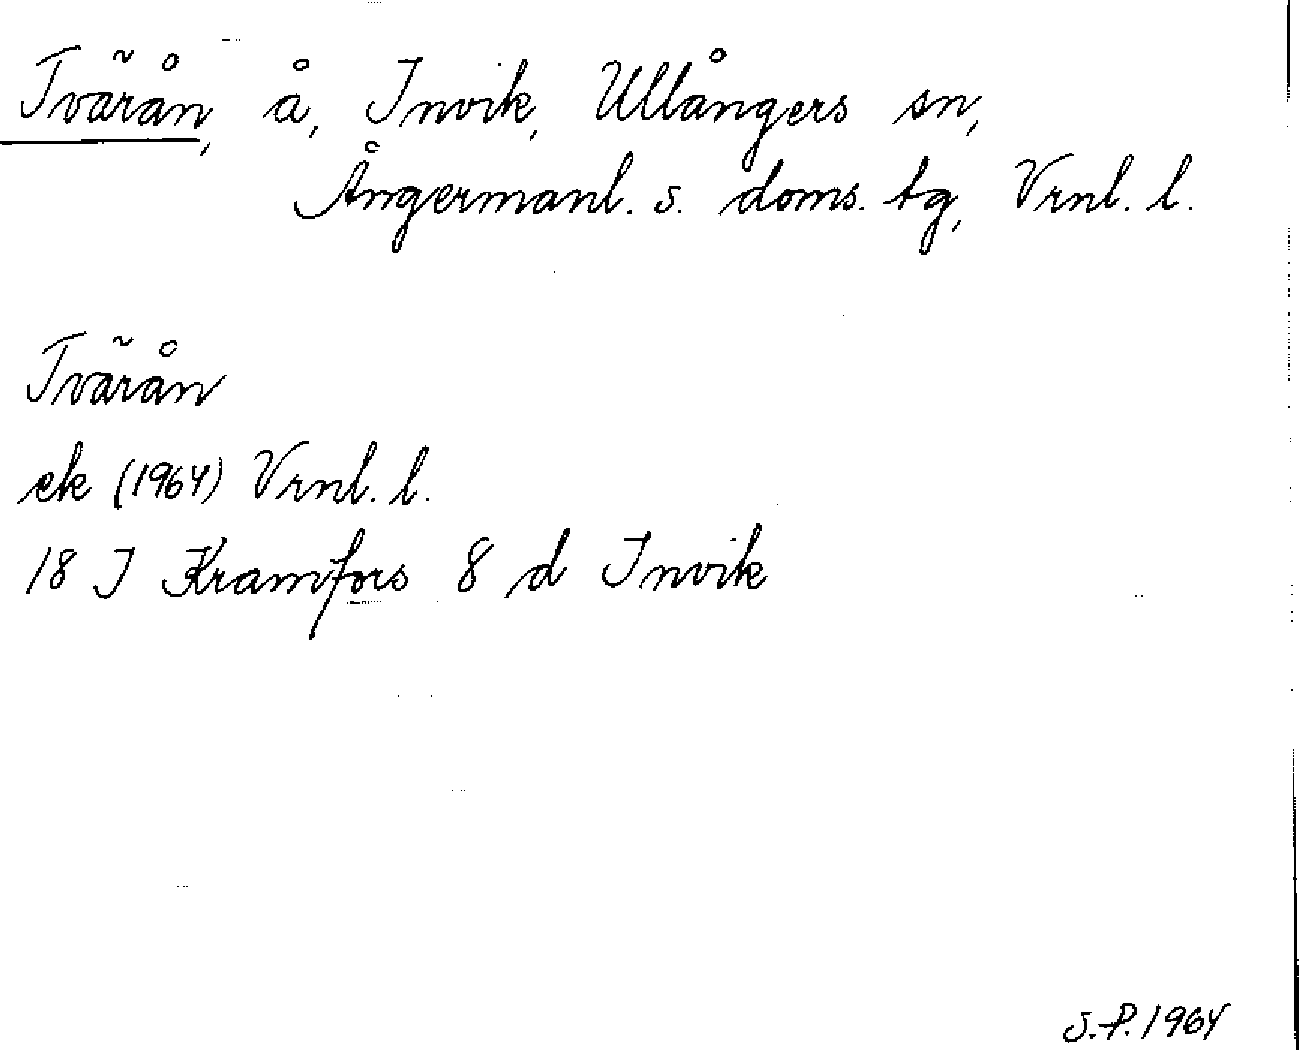 Tvärån, å, Invik, Ullångers sn,
Ångermanl. s. doms. tg, Vrnl. l.
Tvärån
ek (1964) Vrnl. l.
18 I Kramfors 8 d Invik
S.-P. 1964